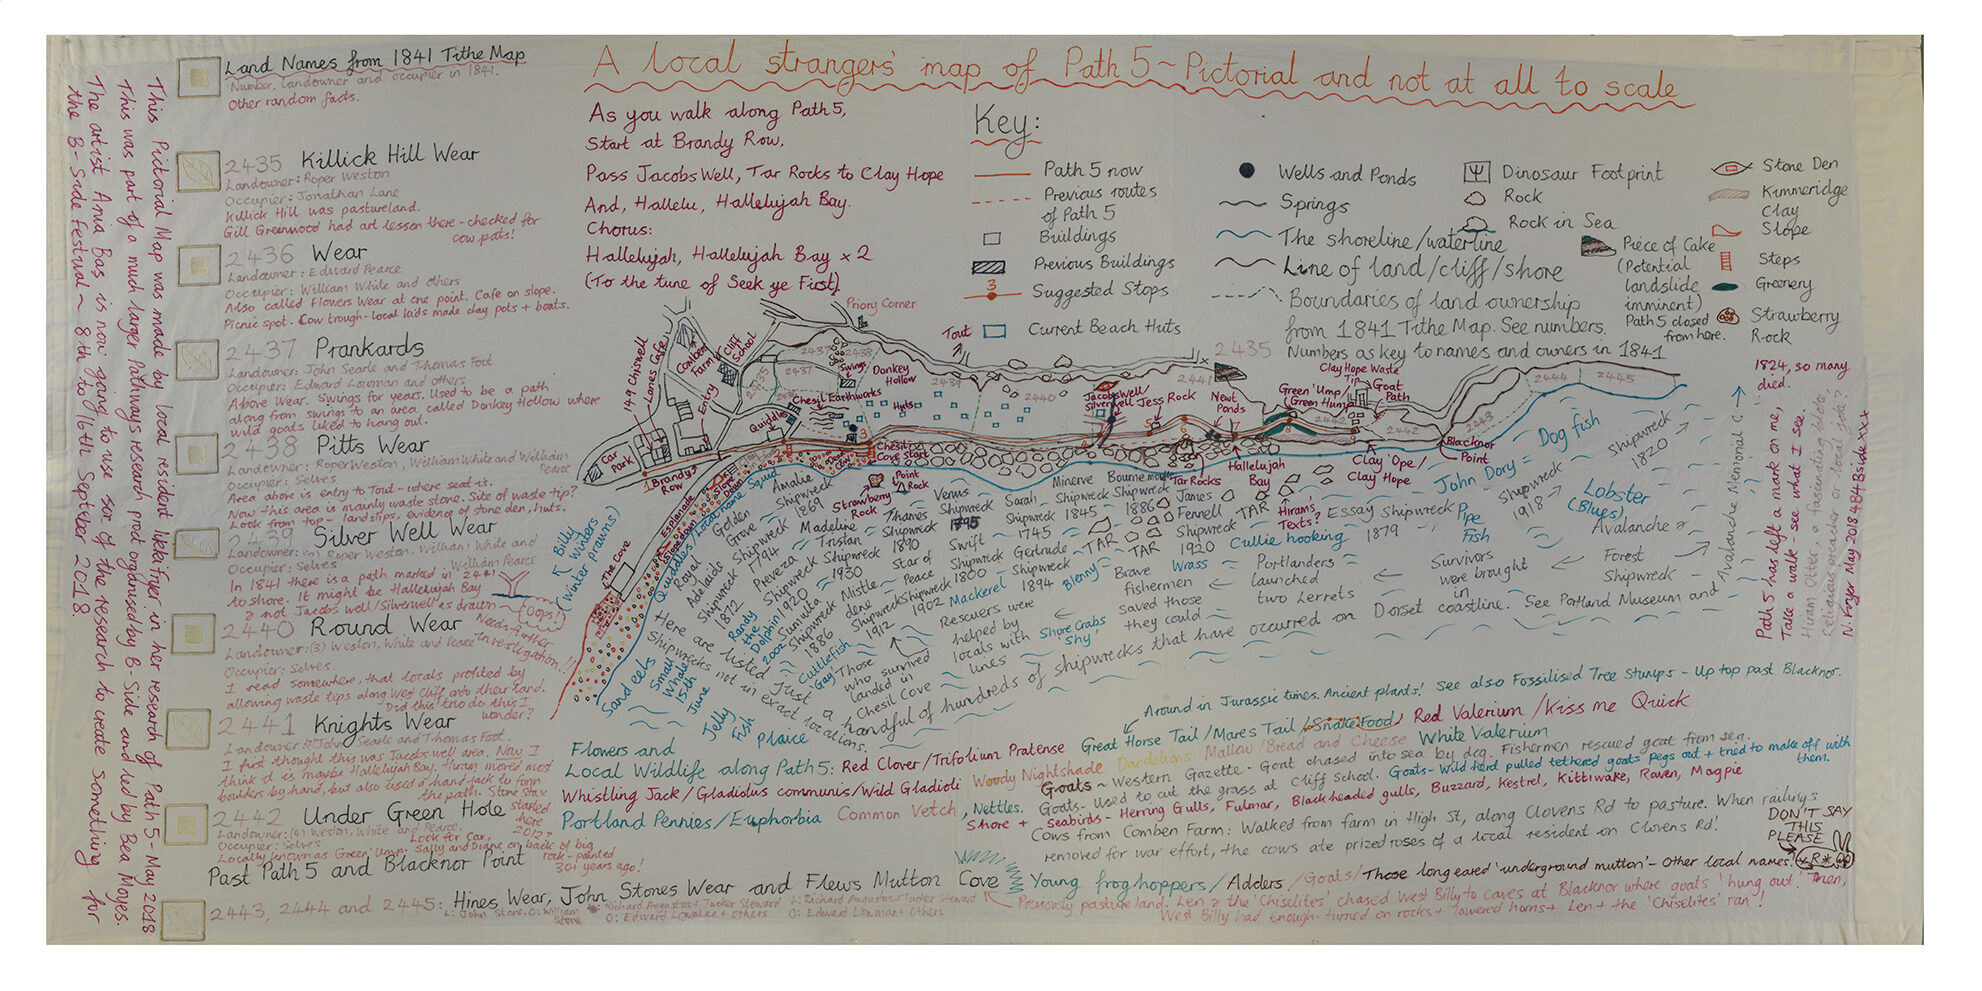 A local stranger's map of Path 5 ~ Pictorial and not at all to scale
This Pictorial Map was made by local resident in her research of Path 5 - May 2018
This was part of a much larger Pathways research project organised by B-Side and led by Bea Moyes.
The artist Ana Bas is now going to use some of the research to create something for
the B-Side Festival ~ 8th to 16th September 2018.
Land Names from 1841 Tithe Map
Number, landowner and occupier in 1841.
Other random facts.
2435 Killick Hill Wear
Landowner: Roper Weston
Occupier: Jonathan Lane
Killick Hill was pastureland.
Gill Greenwood had art lesson there - checked for
cow pats!
2436 Wear
Landowner: Edward Pearce
Occupier: William White and others
Also called Flowers Wear at one point. Cafe on slope.
Picnic spot. Cow trough - local kids made clay pots + boats.
2437 Prankards
Landowner: John Searle and Thomas Foot
Occupier: Edward Lowman and others
Above Wear. Swings for years. Used to be a path
along from swings to an area called Donkey Hollow where
wild goats liked to hang out.
2438 Pitts Wear
Landowner: Roper Weston, William White and William
Pearce
Occupier: Selves
Area above is entry to Tout - where seat is.
Now this area is mainly waste stone. Site of waste tip?
Look from top - landslips, evidence of stone den, huts.
2439 Silver Well Wear
Landowner: Roper Weston, William White and
William Pearce
Occupier: Selves
In 1841 there is a path marked in 2441
to shore. It might be Hallelujah Bay
& not Jacobs well/Silverwell as drawn
(Oops!)
Needs further
investigation!!!
2440 Round Wear
Landowner: (3) Weston, White and Pearce
Occupier: Selves
I read somewhere, that locals profited by
allowing waste tips along West Cliff onto their land.
Did this trio do this I
wonder?
2441 Knights Wear
Landowner: John Searle and Thomas Foot.
I first thought this was Jacobs well area. Now I
think it is maybe Hallelujah Bay. Hiram moved most
boulders by hand, but also used a hand jack to form
the path. Stone Stax
started
here
2012?
2442 Under Green Hole
Landowner: (4) Weston, White and Pearce.
Occupier: Selves
Look for Car,
Locally known as Green 'ump. Sally and Diane, on back of big
rock - painted
30+ years ago!
Past Path 5 and Blacknor Point
2443, 2444 and 2445: Hines Wear, John Stones Wear and Flews Mutton Cove
L: John Stone. O: William Stone
Richard Augustus + Tucker Steward
O: Edward Lowman + Others
L: Richard Augustus + Tucker Steward
O: Edward Lowman + Others
As you walk along Path 5,
Start at Brandy Row,
Pass Jacobs Well, Tar Rocks to Clay Hope
And, Hallelu, Hallelujah Bay.
Chorus:
Hallelujah, Hallelujah Bay x 2
(To the tune of Seek ye First)
Key:
Path 5 now
Previous routes
of Path 5
Buildings
Previous Buildings
3
Suggested Stops
Current Beach Huts
Wells and Ponds
Springs
The shoreline/waterline
Line of land/cliff/shore
Boundaries of land ownership
from 1841 Tithe Map. See numbers.
2435 Numbers as key to names and owners in 1841
Dinosaur Footprint
Rock
Rock in Sea
Piece of Cake
(Potential
landslide
imminent)
Path 5 closed
from here.
Stone Den
Kimmeridge
Clay
Slope
Steps
Greenery
Strawberry
Rock
Priory Corner
Tout
149 Chiswell
Lanes Cafe
Comben Farm
Cliff School
Entry
Quiddles
Car Park
1 Brandy Row
2435
2437
2437
2438
Swings
Donkey
Hollow
Chesil Earthworks
Huts
2439
2440
2441
Dead Cow
Chesil
Cove start
Point
Rock
Strawberry
Rock
Jacobs Well/
Silverwell
Jess Rock
Newt
Ponds
Green 'Ump
(Green Hump)
Clay Hope Waste
Tip
Goat
Path
2442
2442
2443
2444
2445
Blacknor
Point
Tar Rocks
Hallelujah
Bay
Clay 'Ope/
Clay Hope
The Cove
Esplanade
Quiddles/Local name Squid
Billy
Winters
(Winter prawns)
Amalie
Shipwreck
1869
Golden
Grove
Shipwreck
1794
Royal
Adelaide
Shipwreck
1872
Madeline
Tristan
Shipwreck
1930
Preveza
Shipwreck
1920
Thames
Shipwreck
1890
Venus
Shipwreck
1795
Sarah
Shipwreck
1745
Minerve
Shipwreck
1845
Bournemouth
Shipwreck
1886
Swift
Shipwreck
1800
Gertrude
Shipwreck
1894
Star of
Peace
Shipwreck
1902
Mistledene
Shipwreck
1912
Sunlita
Shipwreck
1886
Randy
the
Dolphin
2002
James
Fennell
Shipwreck
1920
TAR
TAR
TAR
Hiram's
Texts?
Essay Shipwreck
1879
Cullie hooking
Pipe
Fish
John Dory = Dog fish
Shipwreck
1918
Shipwreck
1820
Lobster
(Blues)
Avalanche &
Forest
Shipwreck
Avalanche Memorial C.
Mackerel
Blenny
Wrass
Cuttlefish
'Gay'
Shore Crabs
'Shy'
Sand eels
Small
Whale
15th
June
Jelly
Fish
Plaice
Survivors
were brought
in
Portlanders
launched
two Lerrets
Brave
fishermen
saved those
they could
Rescuers were
helped by
locals with
lines
Those
who survived
landed in
Chesil Cove
Here are listed just a handful of hundreds of shipwrecks that have occurred on Dorset coastline. See Portland Museum and
Shipwrecks not in exact locations.
1824, so many
died.
Path 5 has left a mark on me,
Take a walk - see what I see.
Hiram Otter, a fascinating bloke,
Religious preacher or local joke?
N. Fryer May 2018 4 Bside xxx
Flowers and
Local Wildlife along Path 5: Red Clover/Trifolium Pratense Great Horse Tail/Mares Tail/Snake Food, Red Valerium/Kiss me Quick
Around in Jurassic times. Ancient plants! See also Fossilised Tree Stumps - Up top past Blacknor.
Whistling Jack/Gladiolus communis/Wild Gladioli Woody Nightshade Dandelions Mallow/Bread and Cheese White Valerium
Portland Pennies/Euphorbia Common Vetch, Nettles.
Goats ~ Western Gazette - Goat chased into sea by dog. Fishermen rescued goat from sea.
Goats - Used to cut the grass at Cliff School. Goats - Wild herd pulled tethered goats pegs out + tried to make off with
them.
Shore + Seabirds - Herring Gulls, Fulmar, Black headed gulls, Buzzard, Kestrel, Kittiwake, Raven, Magpie
Cows from Comben Farm: Walked from farm in High St, along Clovens Rd to pasture. When railings
removed for war effort, the cows ate prized roses of a local resident on Clovens Rd!
DON'T SAY
THIS
PLEASE
Young froghoppers/Adders/Goats/Those long eared 'underground mutton' - other local names!
Previously pasture land. Len & the 'Chiselites' chased West Billy to caves at Blacknor where goats 'hung out.' Then,
West Billy had enough - turned on rocks + lowered horns + Len + the 'Chiselites' ran!